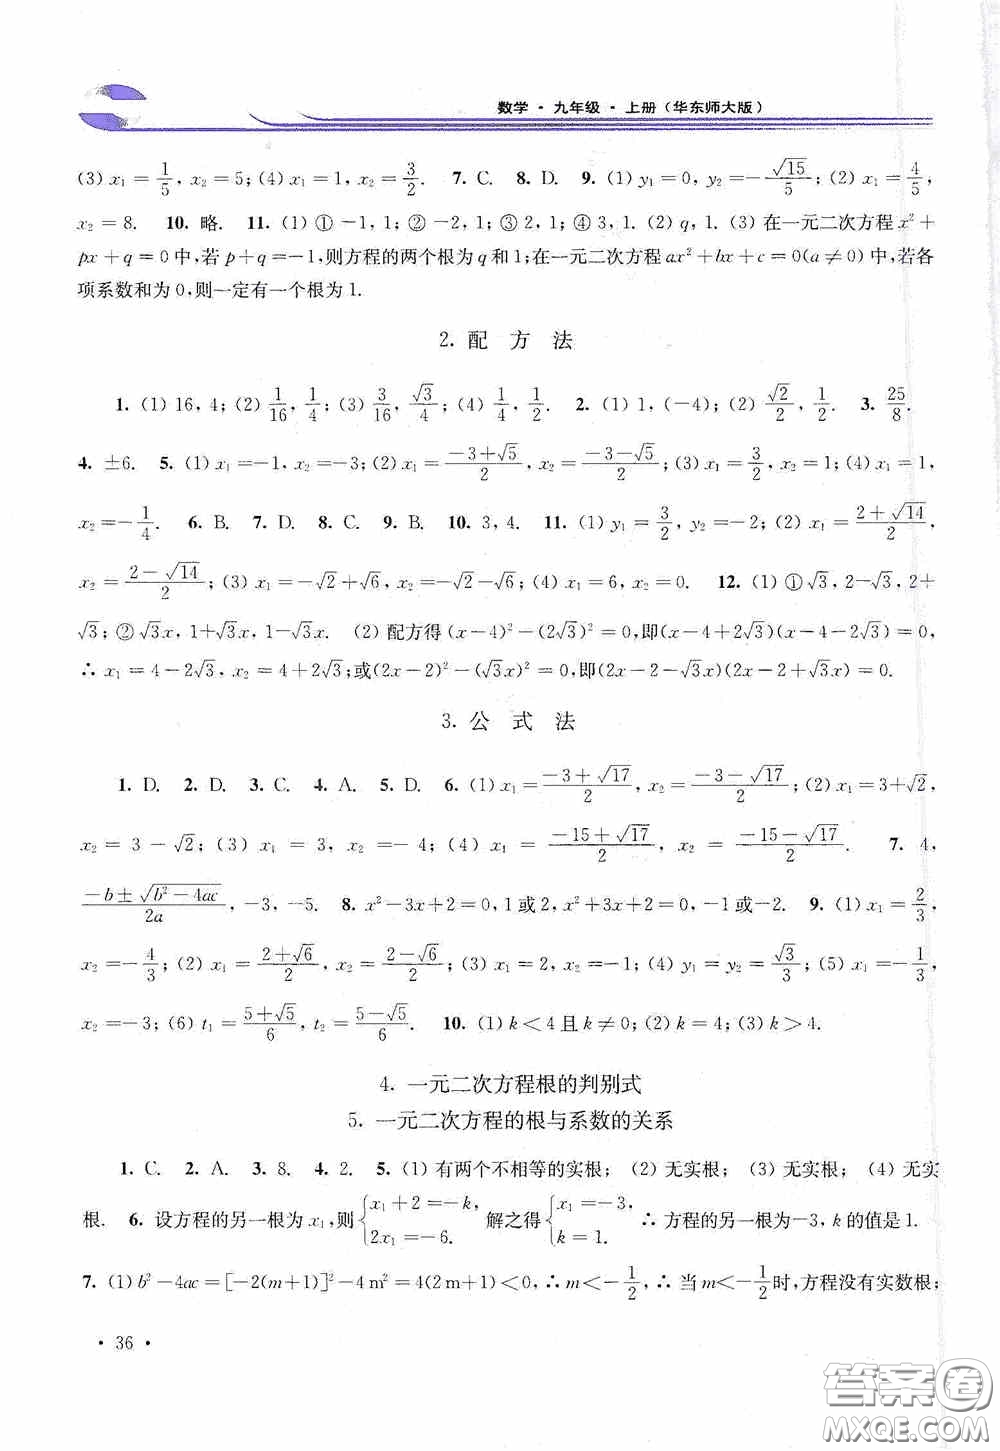 数学·九年级·上册(华东师大版)
(3) x₁=1/5, x₂=5; (4) x₁=1, x₂=3/2. 7. C. 8. D. 9. (1) y₁=0, y₂=-√15/5; (2) x₁=4/5,
x₂=8. 10. 略. 11. (1) ① -1, 1; ② -2, 1; ③ 2, 1; ④ 3, 1. (2) q, 1. (3) 在一元二次方程 x²+
px+q=0中,若 p+q=-1,则方程的两个根为 q 和 1;在一元二次方程 ax²+bx+c=0(a≠0) 中,若各
项系数和为 0,则一定有一个根为 1.
2. 配 方 法
1. (1) 16, 4; (2) 1/16, 1/4; (3) 3/16, √3/4; (4) 1/4, 1/2. 2. (1) 1, (-4); (2) √2/2, 1/2. 3. 25/8.
4. ±6. 5. (1) x₁=-1, x₂=-3; (2) x₁=(-3+√5)/2, x₂=(-3-√5)/2; (3) x₁=3/2, x₂=1; (4) x₁=1,
x₂=-1/4. 6. B. 7. D. 8. C. 9. B. 10. 3, 4. 11. (1) y₁=3/2, y₂=-2; (2) x₁=(2+√14)/2,
x₂=(2-√14)/2; (3) x₁=-√2+√6, x₂=-√2-√6; (4) x₁=6, x₂=0. 12. (1) ① √3, 2-√3, 2+
√3; ② √3x, 1+√3x, 1-√3x. (2) 配方得 (x-4)²-(2√3)²=0,即(x-4+2√3)(x-4-2√3)=0,
∴ x₁=4-2√3, x₂=4+2√3;或(2x-2)²-(√3x)²=0,即(2x-2-√3x)(2x-2+√3x)=0.
3. 公 式 法
1. D. 2. D. 3. C. 4. A. 5. D. 6. (1) x₁=(-3+√17)/2, x₂=(-3-√17)/2; (2) x₁=3+√2,
x₂=3-√2; (3) x₁=3, x₂=-4; (4) x₁=(-15+√17)/2, x₂=(-15-√17)/2. 7. 4,
(-b±√(b²-4ac))/2a, -3, -5. 8. x²-3x+2=0, 1或2, x²+3x+2=0, -1或-2. 9. (1) x₁=2/3,
x₂=-4/3; (2) x₁=(2+√6)/2, x₂=(2-√6)/2; (3) x₁=2, x₂=-1; (4) y₁=y₂=√3/3; (5) x₁=-1/3,
x₂=-3; (6) t₁=(5+√5)/6, t₂=(5-√5)/6. 10. (1) k<4且 k≠0; (2) k=4; (3) k>4.
4. 一元二次方程根的判别式
5. 一元二次方程的根与系数的关系
1. C. 2. A. 3. 8. 4. 2. 5. (1) 有两个不相等的实根; (2) 无实根; (3) 无实根; (4) 无实
根. 6. 设方程的另一根为 x₁,则{x₁+2=-k, 2x₁=-6. 解之得{x₁=-3, k=1. ∴ 方程的另一根为-3, k 的值是 1.
7. (1) b²-4ac=[-2(m+1)]²-4m²=4(2m+1)<0, ∴ m<-1/2, ∴ 当 m<-1/2时,方程没有实数根;
· 36 ·
答案卷
MXQE.COM